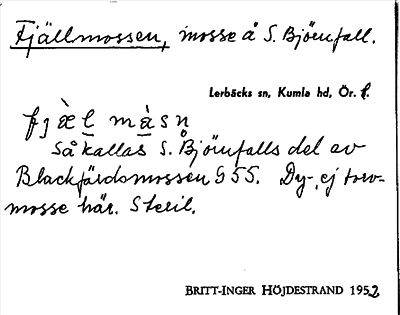 Fjällmossen, mosse å S. Björnfall.
Lerbäcks sn, Kumla hd, Ör. l.
fjæ̀l màsn
Så kallas S. Björnfalls del av
Blackfärdsmossen G 55. Dy-, ej torv-
mosse här. Steril.
BRITT-INGER HÖJDESTRAND 1952